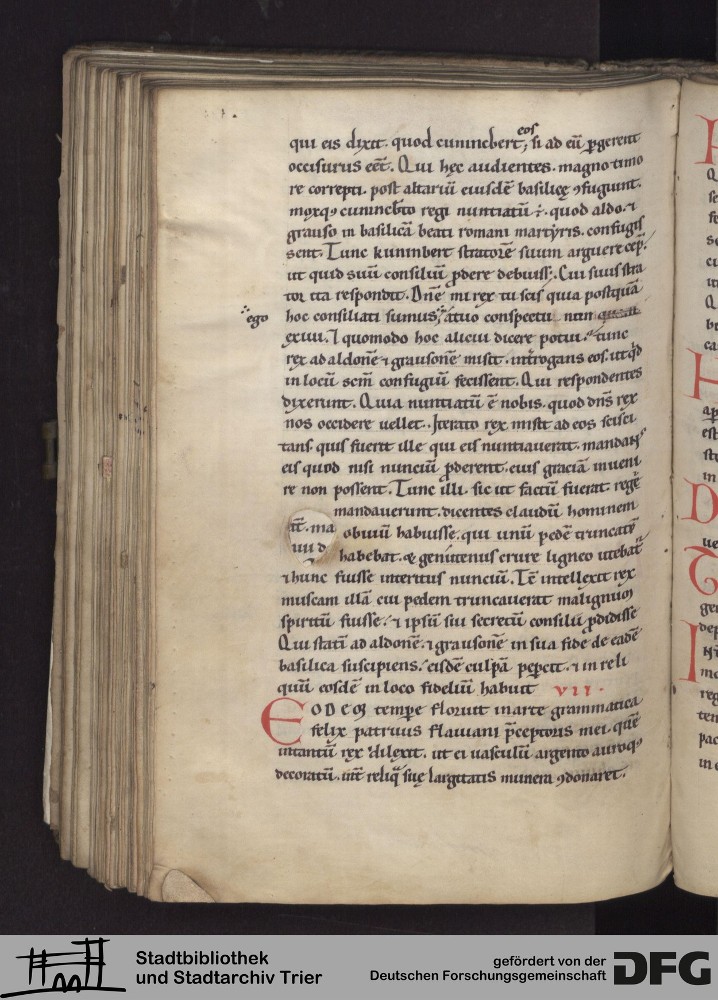 qui eis dixit. quod cunincbert, eos si ad eū ꝑgerent
occisurus eēt. Qui hęc audientes. magno timo
re correpti. post altariū eiusdē basilicę ꝯfugiunt.
moxq; cunincb̅to regi nuntiatū ÷. quod aldo. ⁊
grauso in basilicā beati romani martyris. confugis
sent. Tunc kuninbert stratorē suum arguere cep̅.
ut quid suū consiliū ꝓdere debuiss&. Cui suus stra
tor ita respondit. Dn̅e mi rex tu scis quia postquā
ego
hoc consiliati sumus, a tuo conspectu non
exiui. I quomodo hoc alicui dicere potui. tunc
rex ad aldonē ⁊ grausonē misit. int̅rogans eos. ut qd̅
in locū sc̅m confugiū fecissent. Qui respondentes
dixerunt. Quia nuntiatū ē nobis. quod dn̅s rex
nos occidere uellet. Iterato rex misit ad eos scisci
tans quis fuerit ille qui eis nuntiauerat. mandans
eis quod nisi nunciū ꝓderent. eius gracīa inueni
re non possent. Tunc illi. sic ut factū fuerat. regē
mandauerunt. dicentes claudū hominem
obuiū habuisse. qui unū pedē truncatū
habebat. & genu tenus crure ligneo utebat̅
⁊ hunc fuisse interitus nunciū. Tc̅ intellexit rex
muscam illā cui pedem truncauerat malignum
spiritū fuisse. ⁊ ipsū sui secretū consilii ꝓdidisse
Qui statī ad aldonē. ⁊ grausonē in sua fide de eadē
basilica suscipiens. eisdē culpā peꝑcit. ⁊ in reli
quū eosdē in loco fideliū habuit VII.
EODEM tempore floruit in arte grammatica
felix patruus flauiani p̅ceptoris mei. quē
intantū rex dilexit. ut ei uasculū argento auroq;
decoratū. int̅ reliq̅ suę largitatis munera ꝯdonaret.
Stadtbibliothek
und Stadtarchiv Trier
gefördert von der
Deutschen Forschungsgemeinschaft
DFG